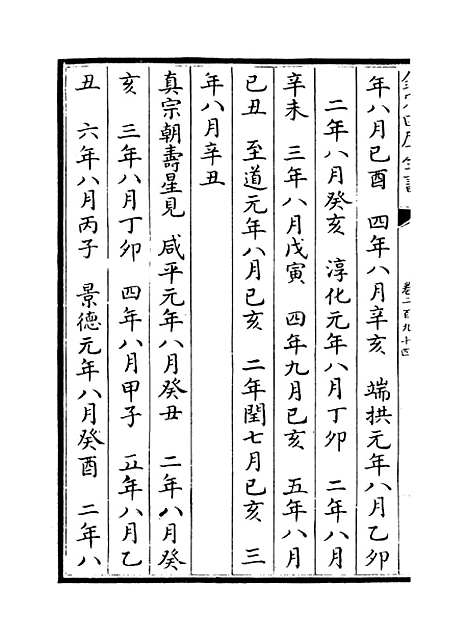 欽定四庫全書
卷二百九十四
年八月己酉　四年八月辛亥　端拱元年八月乙卯
二年八月癸亥　淳化元年八月丁卯　二年八月
辛未　三年八月戊寅　四年九月己亥　五年八月
己丑　至道元年八月己亥　二年閏七月己亥　三
年八月辛丑
真宗朝壽星見　咸平元年八月癸丑　二年八月癸
亥　三年八月丁卯　四年八月甲子　五年八月乙
丑　六年八月丙子　景德元年八月癸酉　二年八